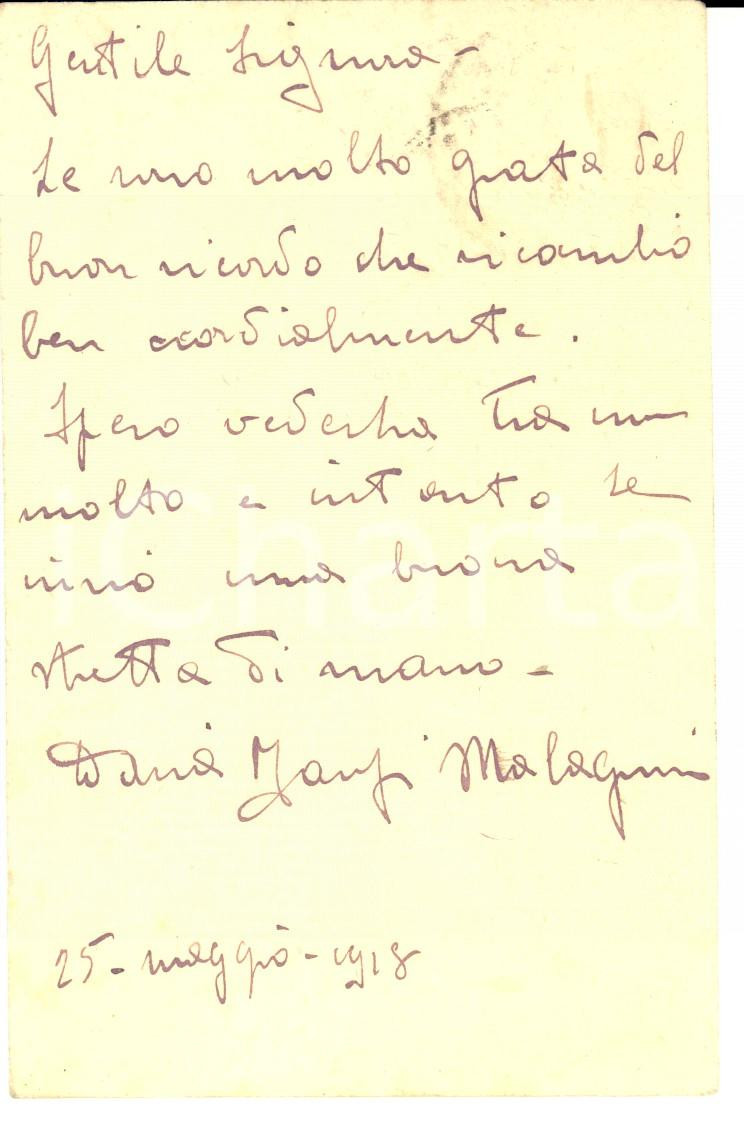 Gentile Signora -
Le sono molto grata del
buon ricordo che ricambio
ben cordialmente.
Spero vederla tra non
molto e intanto Le
invio una buona
stretta di mano -
Daria Malaguzzi
25 - maggio - 1918
iCharta